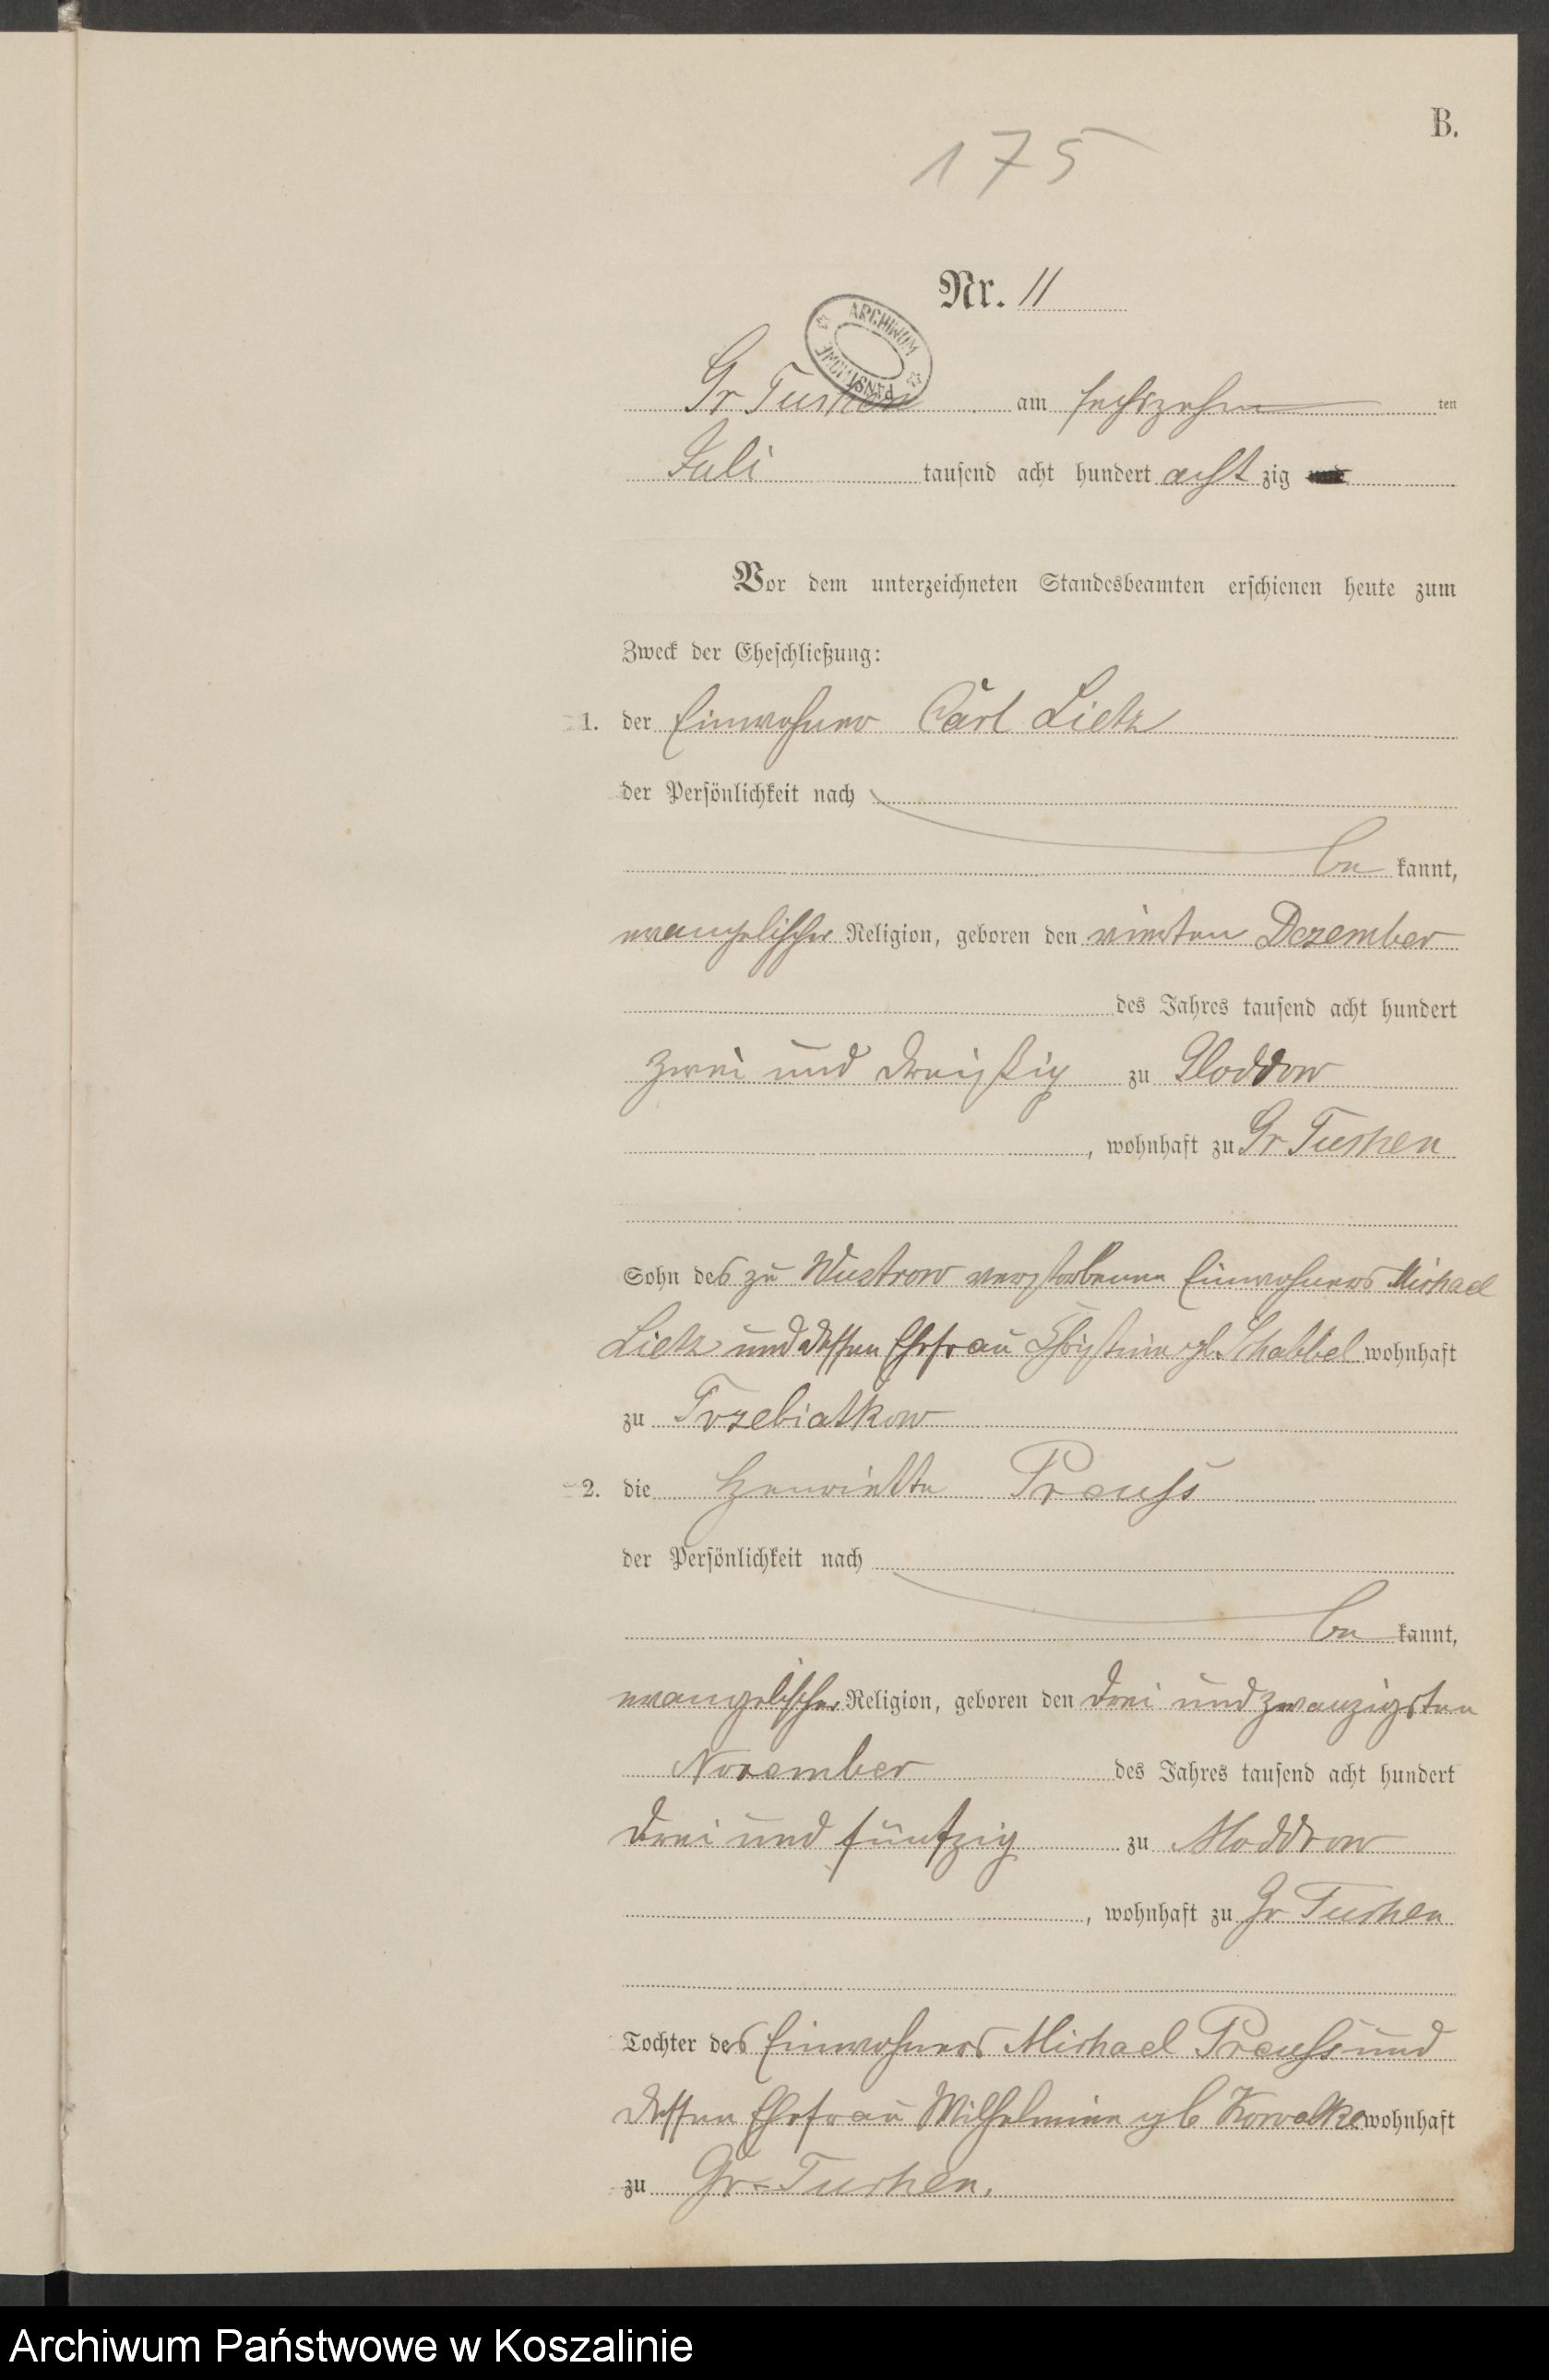 B.
175
Nr. 11
ARCHIWUM PAŃSTWOWE
Gr Tuchen am sechszehn ten
Juli tausend acht hundert acht zig und
Vor dem unterzeichneten Standesbeamten erschienen heute zum
Zweck der Eheschließung:
1. der Einwohner Carl Lietz
der Persönlichkeit nach
be kannt,
evangelischer Religion, geboren den vierten Dezember
des Jahres tausend acht hundert
zwei und dreißig zu Gloddow
, wohnhaft zu Gr Tuchen
Sohn des zu Wustrow verstorbenen Einwohners Michael
Lietz und dessen Ehefrau Christine gb. Schabbel wohnhaft
zu Trzebiatkow
2. die Henriette Preuß
der Persönlichkeit nach
be kannt,
evangelischer Religion, geboren den drei und zwanzigsten
November des Jahres tausend acht hundert
drei und fünfzig zu Moddrow
, wohnhaft zu Gr Tuchen
Tochter des Einwohners Michael Preuß und
dessen Ehefrau Wilhelmine gb Kowalke wohnhaft
zu Gr-Tuchen.
Archiwum Państwowe w Koszalinie